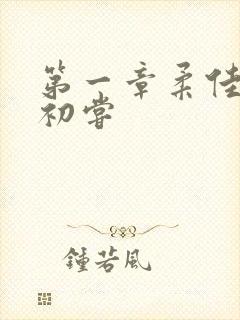 第一章柔佳
初尝
鍾若风